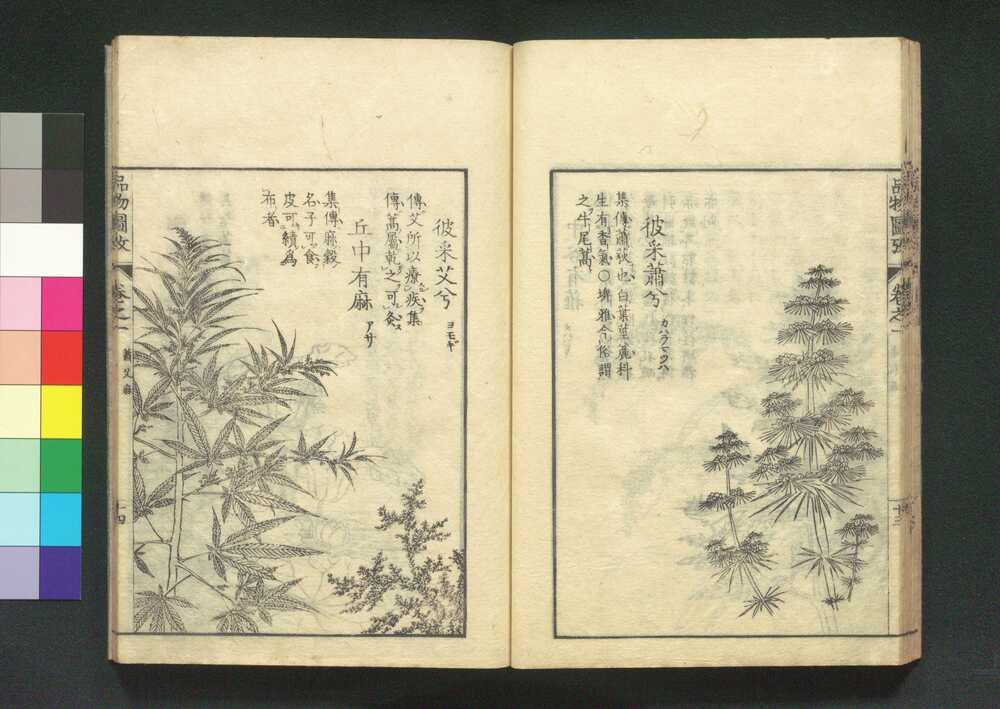 彼采蕭兮 カハラヨモギ
集傳蕭荻也白葉莖麄科
生有香氣○埤雅今俗謂
之牛尾蒿
品物圖攷
卷之一
十三
彼采艾兮 ヨモギ
傳艾所以療疾集
傳蒿屬乾之可灸
丘中有麻 アサ
集傳麻穀
名子可食
皮可績爲
布者
品物圖攷
卷之一
蕭艾麻
十四